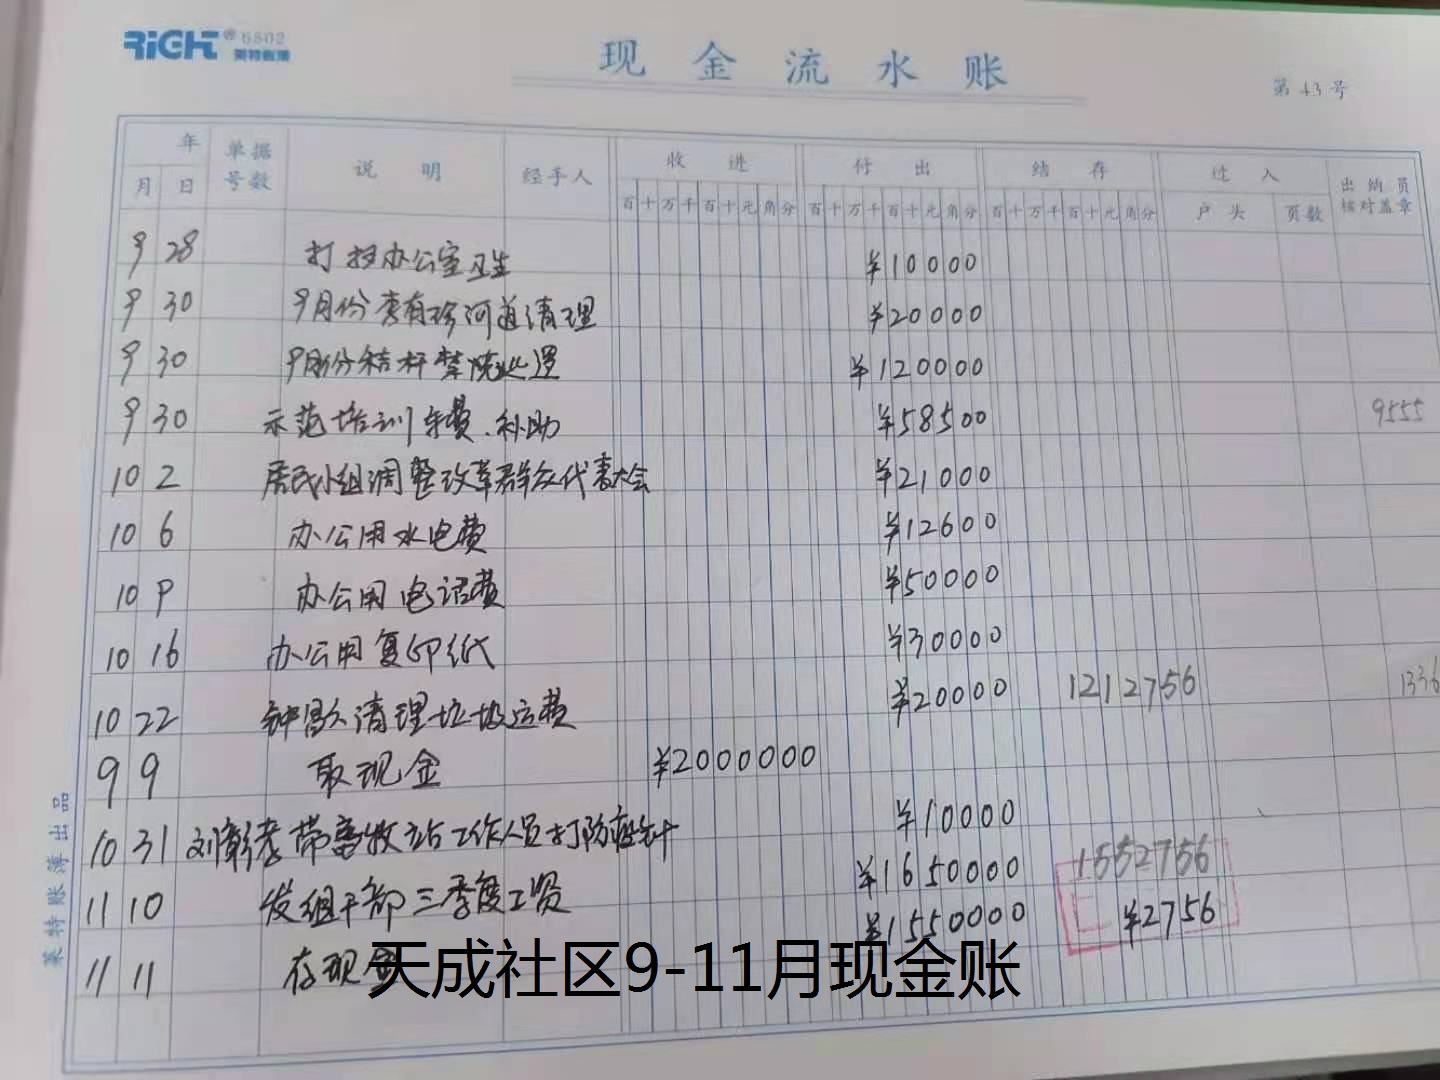 RiGHT® 6802
莱特账簿
现金流水账
第 43 号
年 单据号数 说明 经手人 收进 付出 结存 过入 出纳员核对盖章
月 日 百十万千百十元角分 百十万千百十元角分 百十万千百十元角分 户头 页数
9 28 打扫办公室卫生 ¥10000
9 30 9月份李有珍河道清理 ¥20000
9 30 9月份秸秆禁烧处置 ¥120000
9 30 示范培训车费、补助 ¥58500 9555
10 2 居民小组调整改革群众代表大会 ¥21000
10 6 办公用水电费 ¥12600
10 9 办公用电话费 ¥50000
10 16 办公用复印纸 ¥30000
10 22 清理垃圾运费 ¥20000 1212756 1336
9 9 取现金 ¥2000000
10 31 带畜牧站工作人员打防疫针 ¥10000
11 10 发组干部三季度工资 ¥1650000 1552756
11 11 存现金 ¥1550000 ¥2756
天成社区9-11月现金账
莱特账簿出品